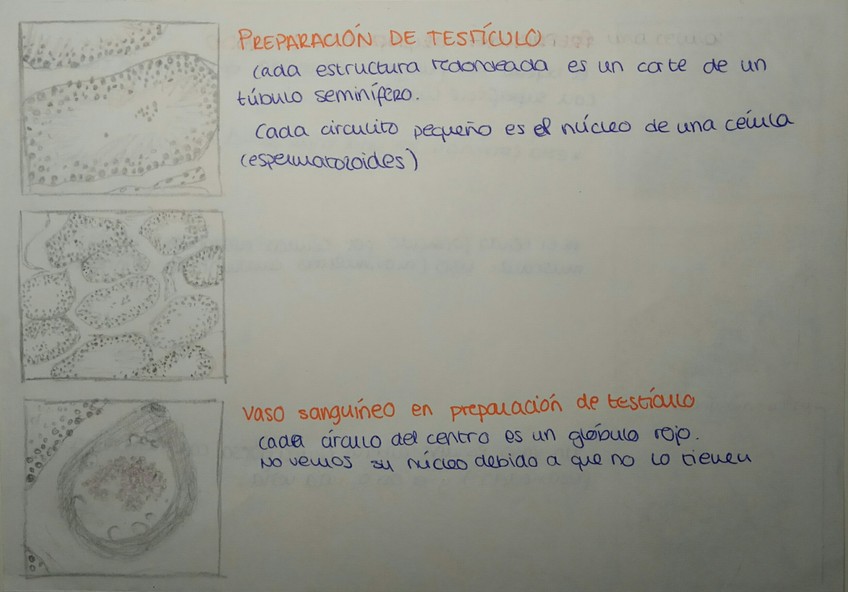 PREPARACIÓN DE TESTÍCULO.
Cada estructura redondeada es un corte de un
túbulo seminífero.
Cada circulito pequeño es el núcleo de una célula
(espermatozoides)
Vaso sanguíneo en preparación de testículo
Cada círculo del centro es un glóbulo rojo.
No vemos su núcleo debido a que no lo tienen